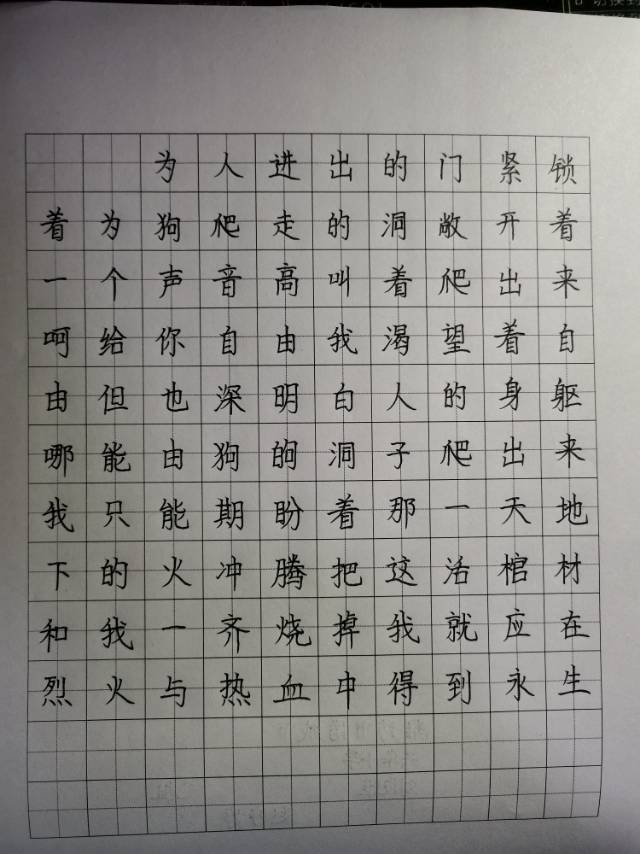 为人进出的门紧锁
着为狗爬走的洞敞开着
一个声音高叫着爬出来
呵给你自由我渴望着自
由但也深明白人的身躯
哪能由狗的洞子爬出来
我只能期盼着那一天地
下的火冲腾把这活棺材
和我一齐烧掉我就应在
烈火与热血中得到永生